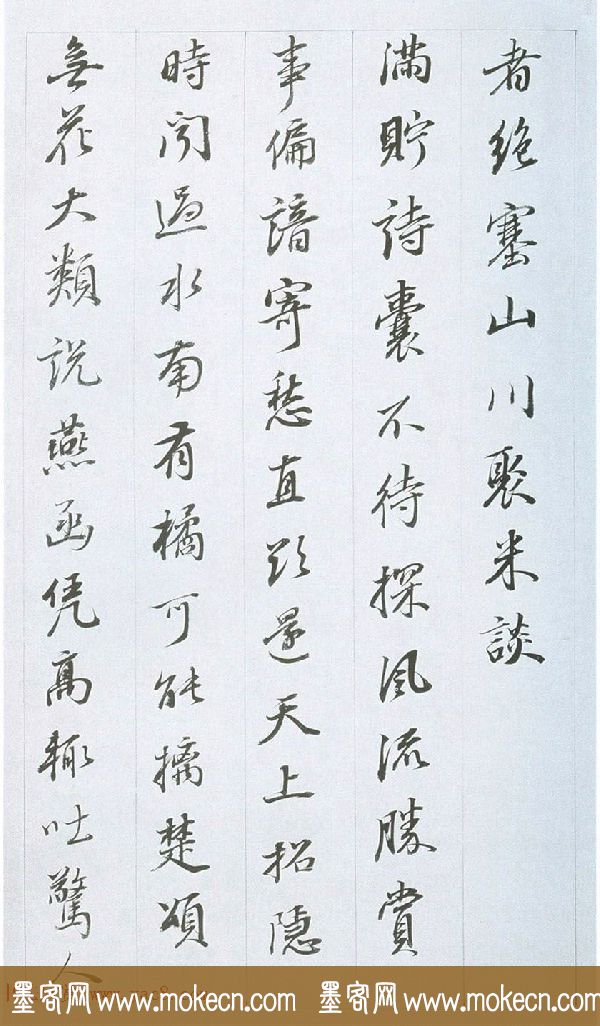 者絶塞山川聚米談
滿貯詩囊不待探風流勝賞
事偏諳寄愁直欲還天上招隱
時聞過水南有橘可能摛楚頌
無花大類説燕函凭高輒吐驚人
墨客网 www.mokecn.com 墨客网 www.mokecn.com